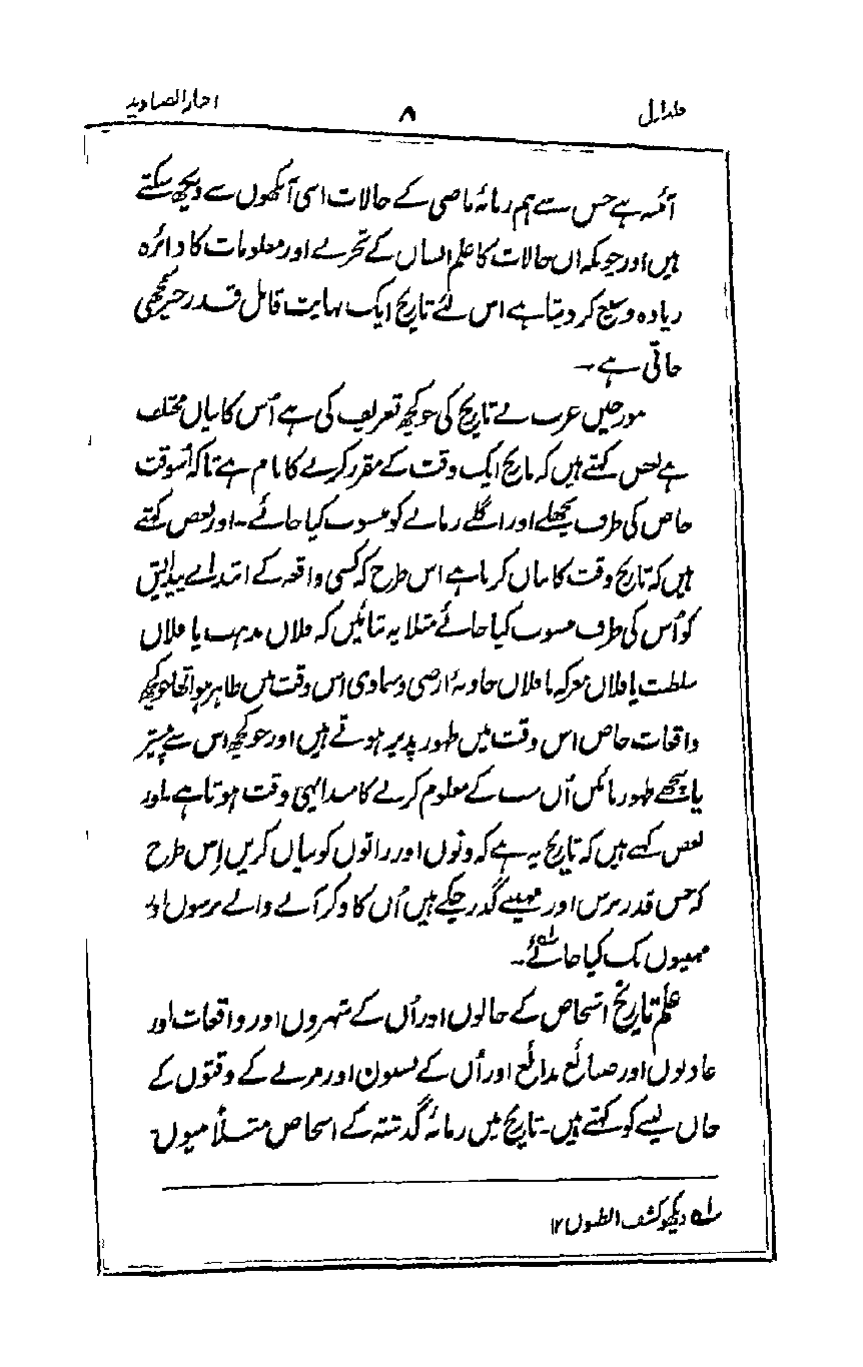 جلد اول ۸ اخبار الصنادید
آئینہ ہے جس سے ہم زمانۂ ماضی کے حالات اسی آنکھوں سے دیکھ سکتے
ہیں اور چونکہ اُن حالات کا علم انسان کے تجربے اور معلومات کا دائرہ
زیادہ وسیع کر دیتا ہے اس لئے تاریخ ایک نہایت قابل قدر چیز سمجھی
جاتی ہے ۔
مورخین عرب نے تاریخ کی جو کچھ تعریف کی ہے اُس کا بیان مختلف
ہے بعض کہتے ہیں کہ تاریخ ایک وقت کے مقرر کرنے کا نام ہے تاکہ اُسوقت
خاص کی طرف پچھلے اور اگلے زمانے کو منسوب کیا جائے ۔ اور بعض کہتے
ہیں کہ تاریخ وقت کا بیان کرنا ہے اس طرح کہ کسی واقعہ کے ابتدائے پیدایش
کو اُس کی طرف منسوب کیا جائے مثلا یہ بتائیں کہ فلاں مذہب یا فلاں
سلطنت یا فلاں معرکہ یا فلاں حادثۂ ارضی و سماوی اس وقت میں ظاہر ہوا تھا جو کچھ
واقعات خاص اس وقت میں ظہور پذیر ہوتے ہیں اور جو کچھ اس سے پیشتر
یا پیچھے ظہور پائیں اُن سب کے معلوم کرنے کا مبدا یہی وقت ہوتا ہے ۔ اور
بعض کہتے ہیں کہ تاریخ یہ ہے کہ دنوں اور راتوں کو بیاں کریں اِس طرح
کہ جس قدر برس اور مہینے گذر چکے ہیں اُن کا ذکر آنے والے برسوں اور
مہینوں تک کیا جائے ۔
علم تاریخ اشخاص کے حالوں اور اُن کے شہروں اور واقعات اور
عادتوں اور صنائع بدائع اور اُن کے نسبوں اور مرنے کے وقتوں کے
جان لینے کو کہتے ہیں ۔ تاریخ میں زمانۂ گذشتہ کے اشخاص مثلاً نبیوں
لہ دیکھو کشف الظنون ۱۲